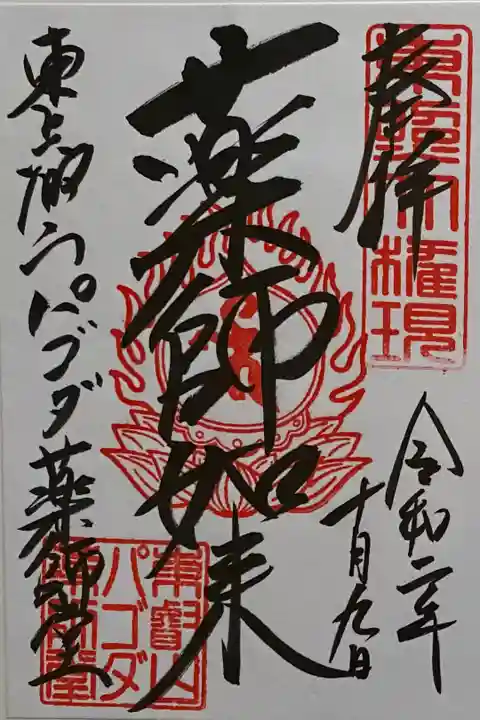 奉拝
東照大権現
令和二年
十月九日
薬師如来
東上 パゴダ薬師堂
東叡山
パゴダ
薬師堂